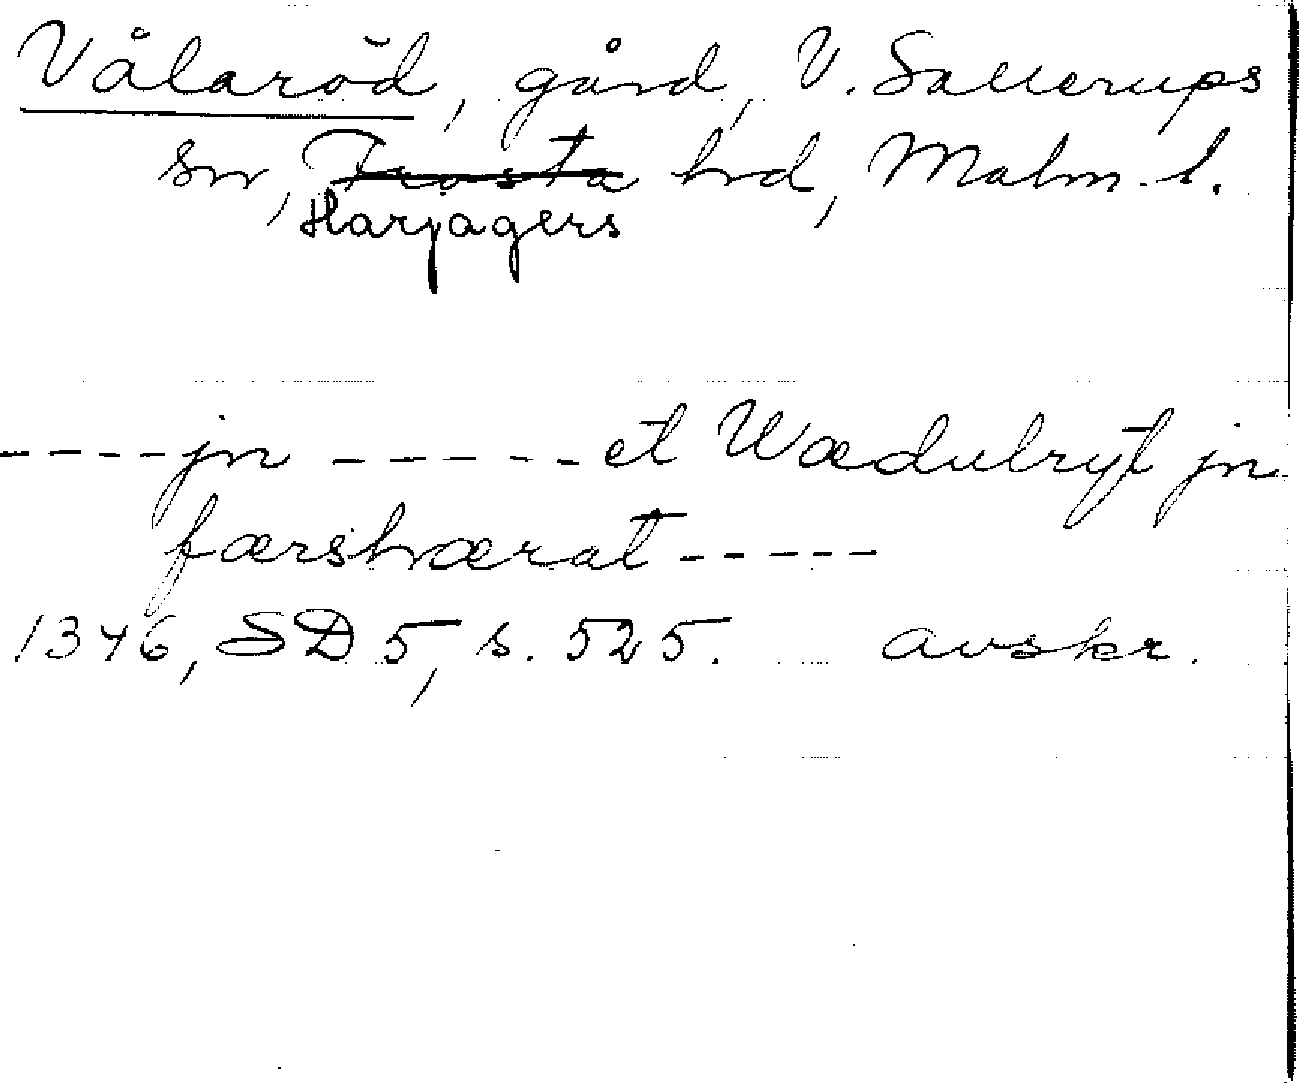 Vålaröd, gård, V. Sallerups
sn, Frosta hd, Malm. l.
Harjagers
----jn -----et Wædulryt jn
færshærat-----
1346, SD 5, s. 525. avskr.